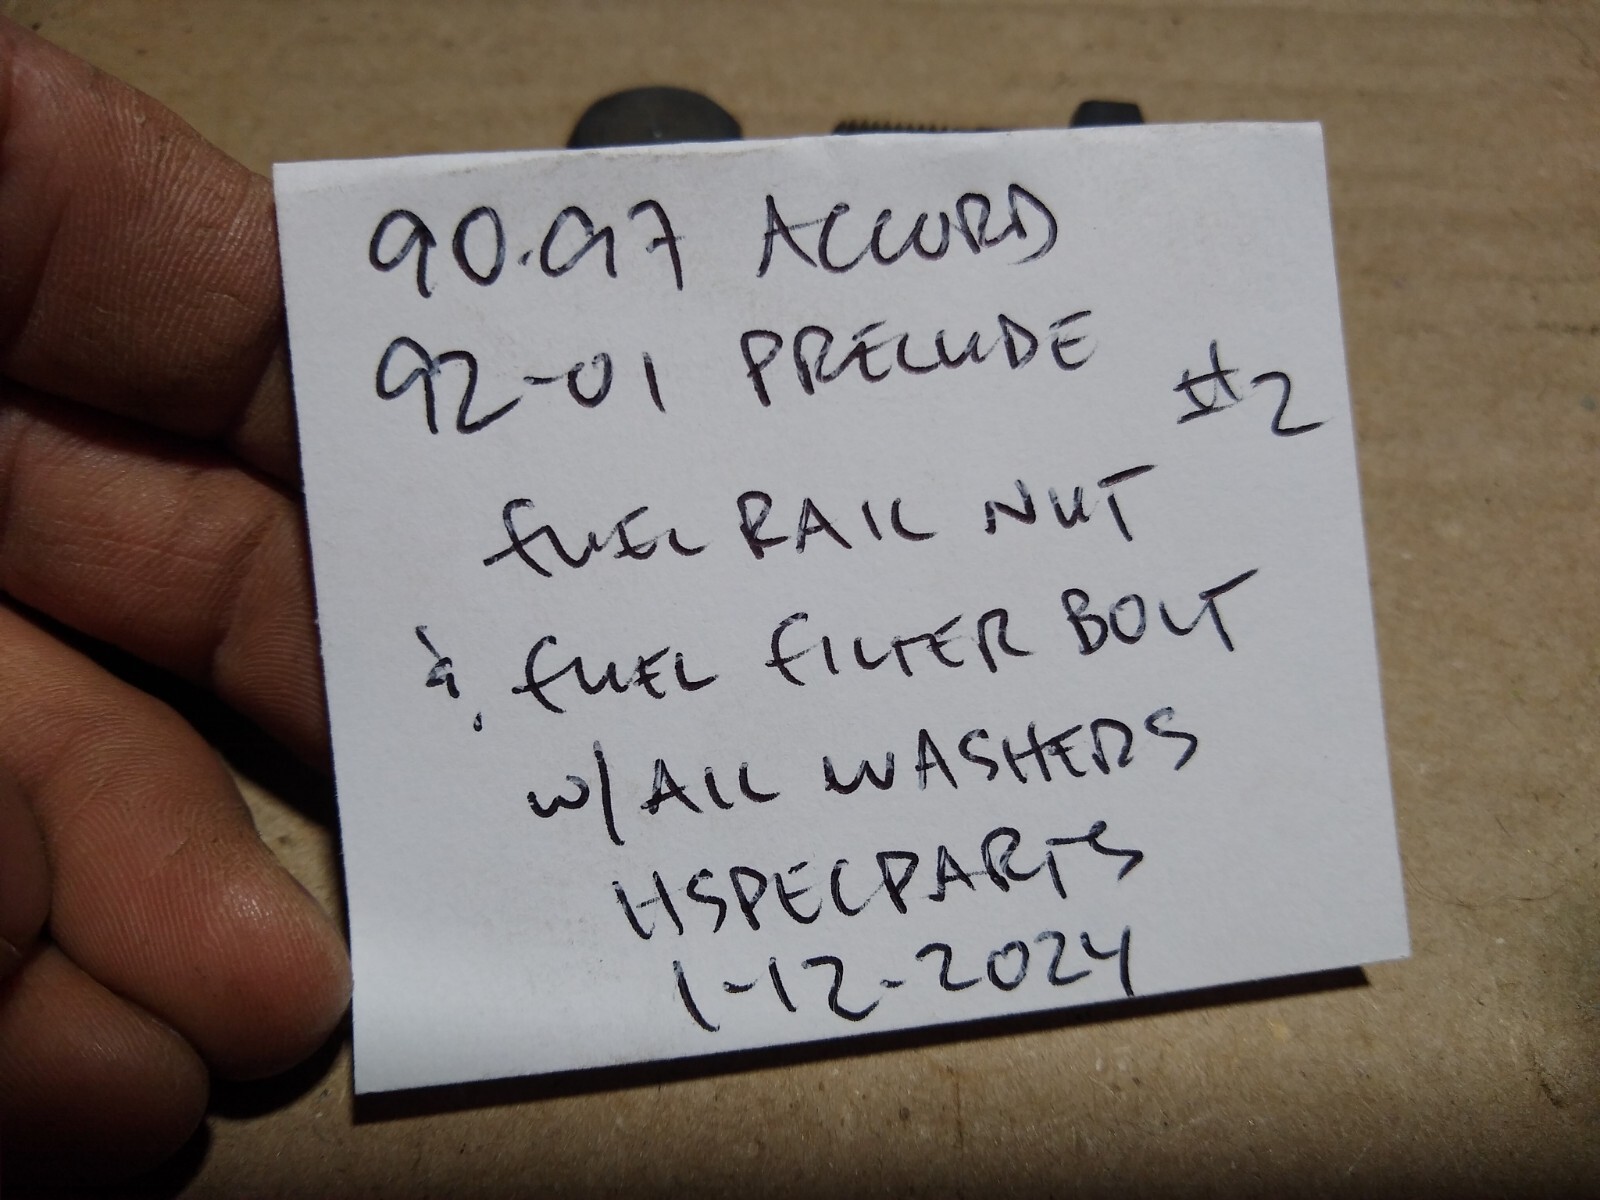 90-97 ACCORD
92-01 PRELUDE
#2
FUEL RAIL NUT
& FUEL FILTER BOLT
W/ ALL WASHERS
HSPECPARTS
1-12-2024